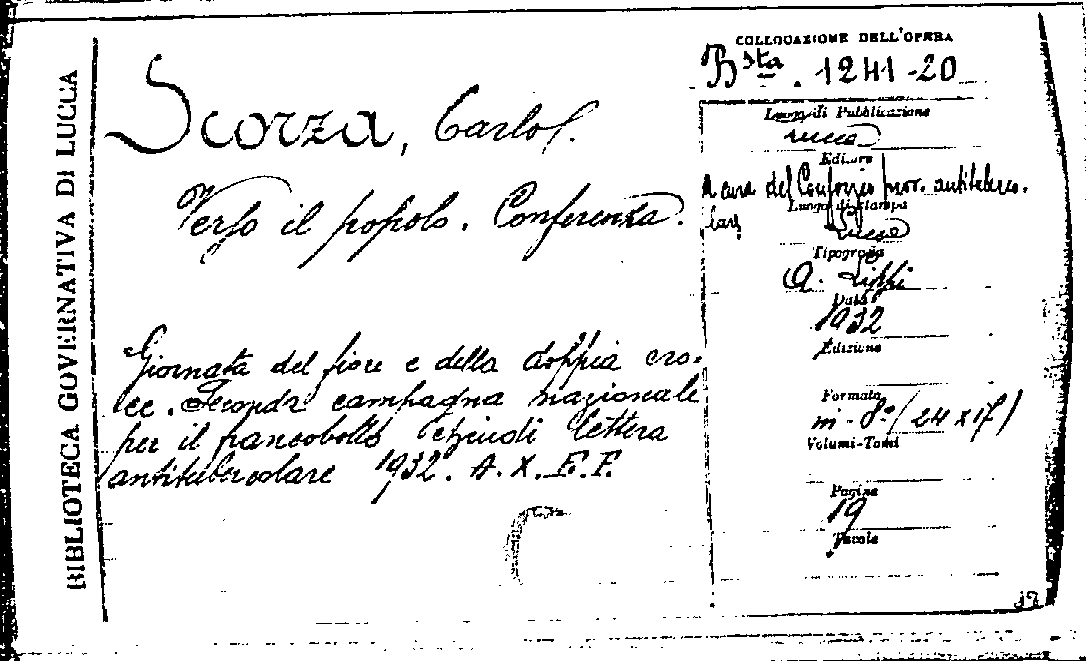 BIBLIOTECA GOVERNATIVA DI LUCCA
Scorza, Carlo.
Verso il popolo. Conferenza.
Giornata del fiore e della doppia cro-
ce. Seconda campagna nazionale
per il francobollo chiudi lettera
antitubercolare 1932. A. X. E. F.
COLLOCAZIONE DELL'OPERA
Bsta. 1241-20
Luogo di Pubblicazione
Lucca
Editore
A cura del Consorzio prov. antituberco-
lare
Luogo di stampa
Lucca
Tipografia
A. Lippi
Data
1932
Edizione
Formato
in-8º (24x17)
Volumi-Tomi
Pagine
19
Tavole